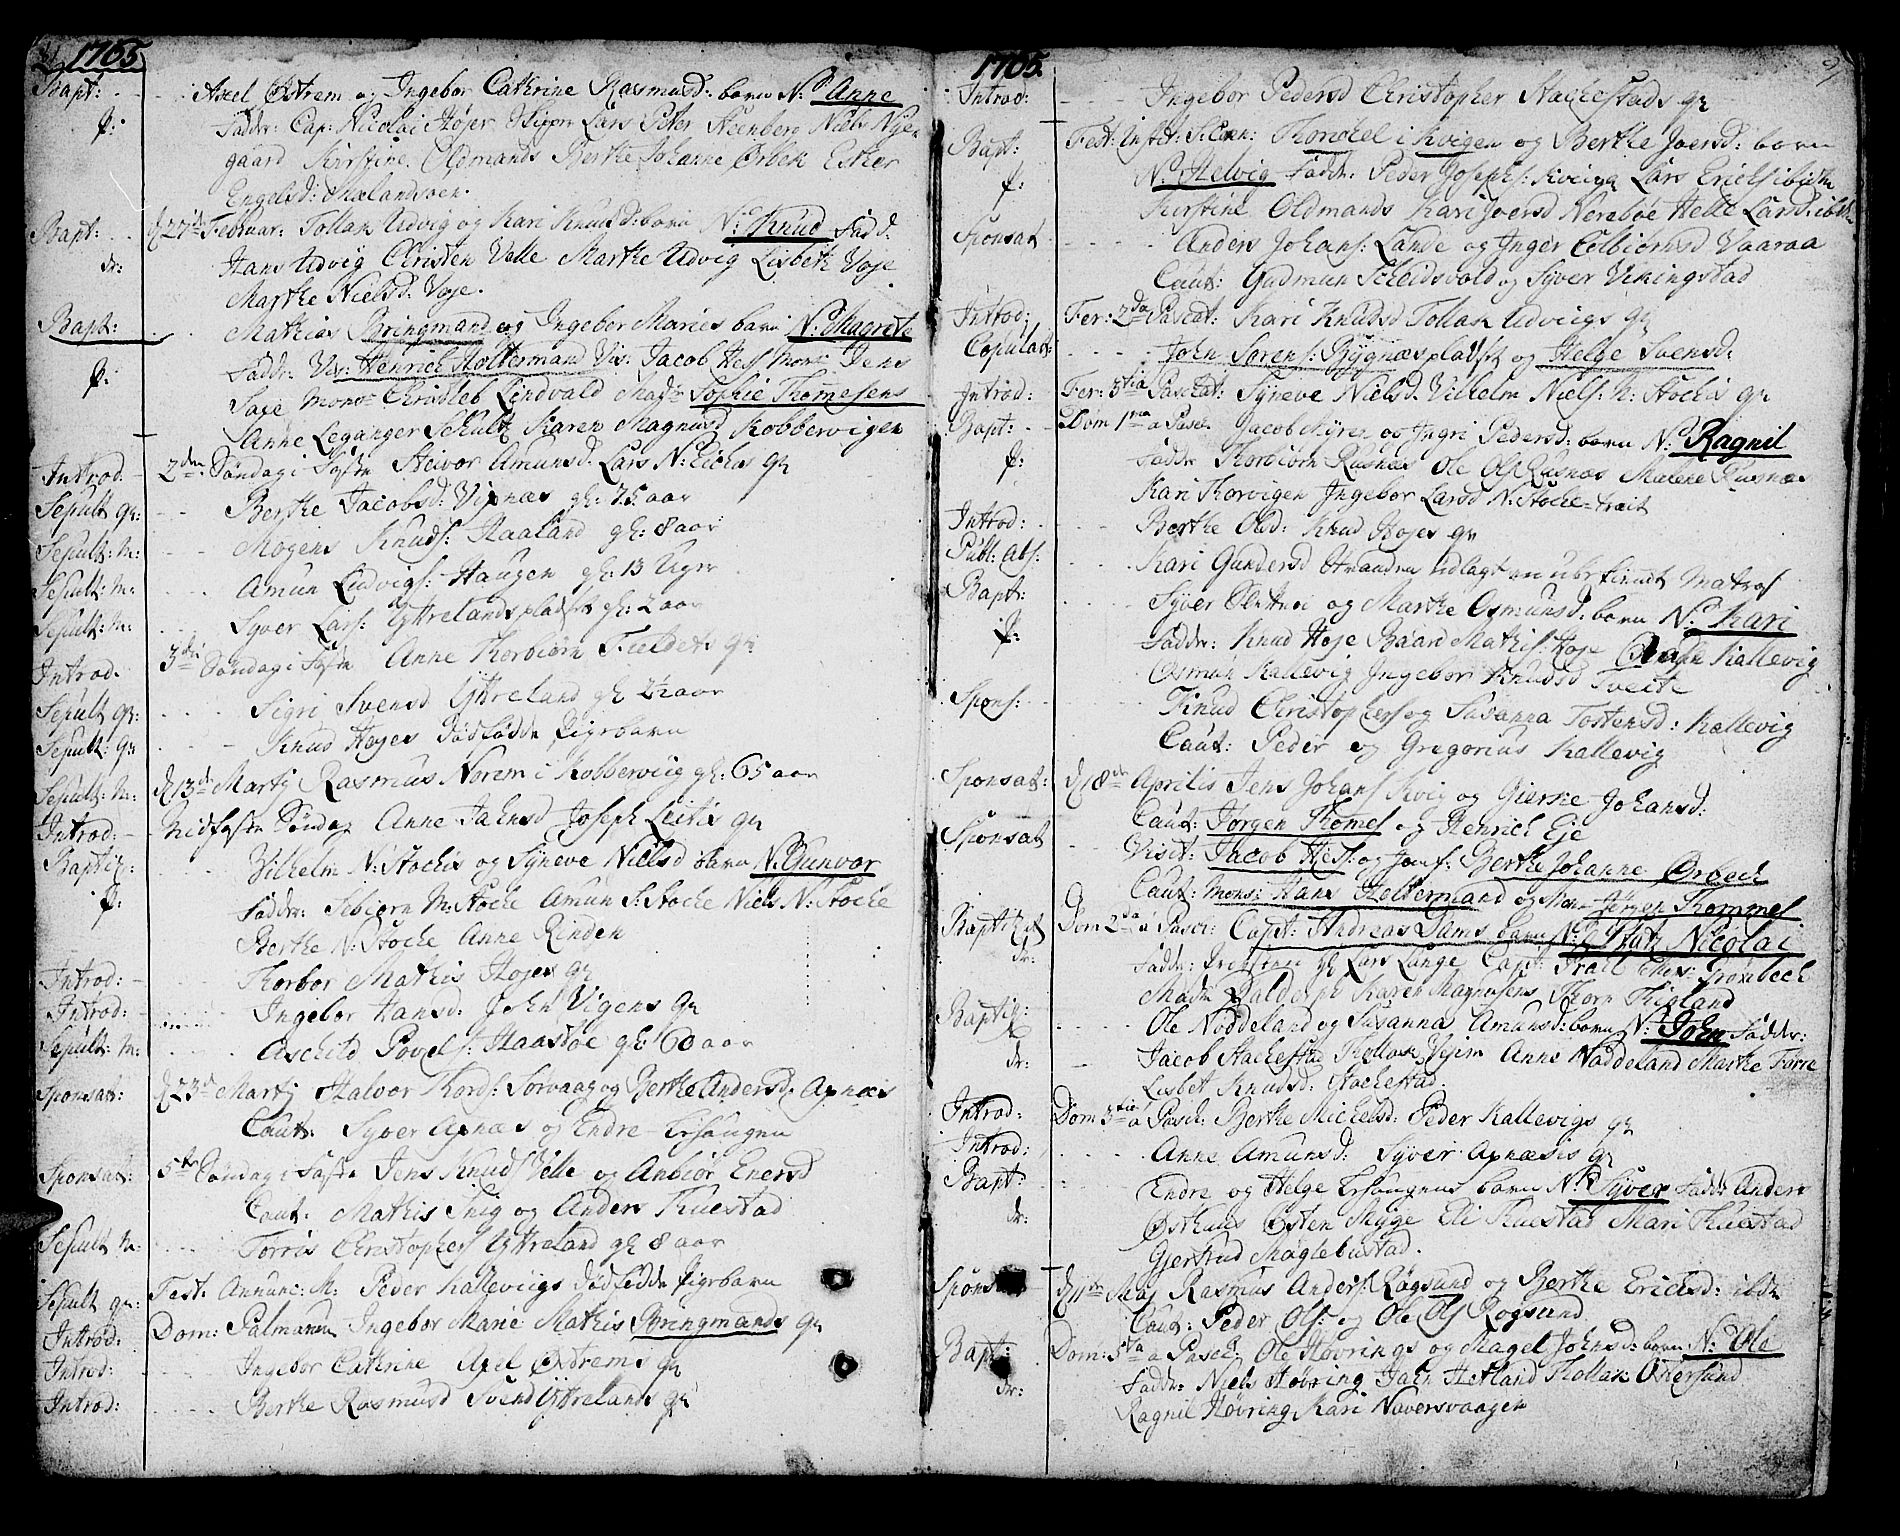 1765
Bapt: Axel Østrem og Ingebor Cathrine Rasmusd: barn N: Anne
p: Fadd: Cap: Nicolai Høyer Skippr Lars Peter Steenberg Niels Nye
gaard Kirstine Oldmands Berthe Johanne Ørbek Ester
Engelsd: Mælandsøen.
Bapt: d 27de Februar: Tollak Udvig og Kari Knudsd: barn N: Knud Fadd.
dr: Hans Udvig Christen Velle Marthe Udvig Lisbeth Voje
Marthe Nielsd: Voje.
Bapt: Mathias Bringmand og Ingebor Maries barn N: Magrete
p: Fadd: Vis: Henrich Holtermand Vis: Jacob Hess Mons: Jens
Saxe Mons: Lindvald Mad: Sophie Thomesens
Sanne Leganger Schultz Karen Magnusd Kobbervigen
Introd: 2den Søndag i Faste Heivor Amunsd: Lars N: Stokes qr
Sepult qr: Berthe Jacobsd: Vignæs gl: 75 aar
Sepult: M: Mogens Knuds: Haaland gl: 8 aar
Sepult: M: Amun Ludvigs: Haugen gl: 13 Uger
Sepult: M: Syver Lars: Yttrelandspladset gl: 2 aar
Introd. 3die Søndag i Faste Anne Thorbiørn Fieldets qr
Sepult qr: Sigri Svensd Yttreland gl 2½ aar
Sepult: qr Knud Høyes Dødfødde Pigebarn
Sepult: M: d 13de Martj Rasmus Norem i Kobbervig gl: 65 aar
Introd: Midfaste Søndag Anne Jahnsd Joseph Leitis qr
Baptiz: Vilhelm N: Stockis og Syneve Nielsd barn N: Gunvor
p: Fadder: Sebiørn M: Stocke Amun S: Stocke Niels N: Stocke
Berthe N: Stocke Anne Rinden
Introd: Thorbor Mathis Høyes qr
Introd: Ingebor Hansd: John Vigens qr
Sepult: M: Aschild Povels: Haastøe gl 60 aar
Sponsat: d 23de Martj Halvor Thords: Sørvaag og Berthe Andersd. Apnæs
Caut: Syver Apnæs og Endre Ersangen
Sponsat: 5te Søndag i Faste Jens Knuds Velle og Anbiør Enersd
Caut: Mathis Snig og Anders Thuestad
Sepult M: Torris Christophers Yttreland gl 8 aar
Sepult qr: Fest. Annunc: M: Peder Kallevigs Dødfødde Pigebarn
Introd: Dom: Palmarum Ingebor Marie Mathis Bringmands qr
Introd: Ingebor Cathrine Axel Østrems qr
Introd: Berthe Rasmusd Svend Yttrelands qr
1765.
Introd: Ingebor Pedersd Christopher Stachestads qr
Bapt: Fest: Instit: S: Coen: Thorckel i Hvigen og Berthe Joersd: barn
p: N: Helvig Fadd: Peder Josephs: Hveiga Lars Erichs ibidem
Kirstine Oldmands Kari Joersd Nerebøe Helle Larsd: ibid
Sponsat Anders Johans: Lande og Inger Colbiørnsd Vaaraa
Caut: Gudmun Skeidsvold og Syver Vikingstad
Introd: Fer: 2da Paschat: Kari Knudsd Tollak Udviigs qr
Copulat: John Sørens: Bygnæspladset og Helge Svensd:
Introd: Fer: 3tia Paschat: Syneve Nielsd. Vilhelm Niels: N: Stockis qr
Bapt: Dom 1ma a Pasch Jacob Myre og Ingri Pedersd: barn N: Ragnil
p: Fadder Thorbiørn Rusnæs Ole Ols Rusnæs Malene Rusnæs
Kari Thorvigen Ingebor Larsd N: Stocke-træit
Introd: Berthe Olsd: Knud Høyes qr
Publ: Abs: Kari Gundersd Stranden udlagt en ubekiendt Matros
Bapt: Syver og Marthe Osmunsd: barn N: Kari
p: Fadder: Knud Høje Baard Mathis: Høje Kallevig
Osmun Kallevig Ingebor Knudsd Tveite
Spons: Knud Christophers og Susanna Tostensd: Kallevig
Caut: Peder og Gregorius Kallevig
Sponsat: d 18de Aprilis Jens Johans Kvig og Giertrue Johansd:
Caut: Jørgen Thomes og Henrich Eje
Sponsat Visit: Jacob Hess: og Jomf: Berthe Johanne Ørbech
Caut: Mons: Hans Holtermand og Mons Jørgen Thommes
Baptizat Dom 2da a Pasch: Capt: Andreas Dams barn N: Nicolai
dr: Fadder: gl Lars Lange Capt: Grønbech
Mad: Karen Magnusens Thorn Thigland
Baptiz: Ole Noddeland og Susanna Amunsd: barn N: John Fadder:
dr: Jacob Stachestad Thollak Vejem Anne Noddeland Marthe Torre
Lisbet Knudsd: Stachestad.
Introd: Dom 3tia a Pasch: Berthe Michelsd: Peder Kallevigs qr
Introd: Anne Amunsd: Syver Apnæsis qr
Bapt: Endre og Helge Ersangens barn N: Syver Fadd: Anders
dr: Østhuus Østen Myge Eli Thuestad Mari Thuestad
Gjertrud Maglebustad.
Spons d 11te Maj Rasmus Anders: Røgsund og Berthe Ericsd: ibdm
Caut: Peder Ols: og Ole Ols Rogsund
Bapt: Dom: 5ta a Pasch: Ole Høvrings og Magel Johnsd: barn N: Ole
dr: Fadd: Niels Høvring John Hetland Thollak Østersund
Ragnil Høvring Kari Naversvaagen